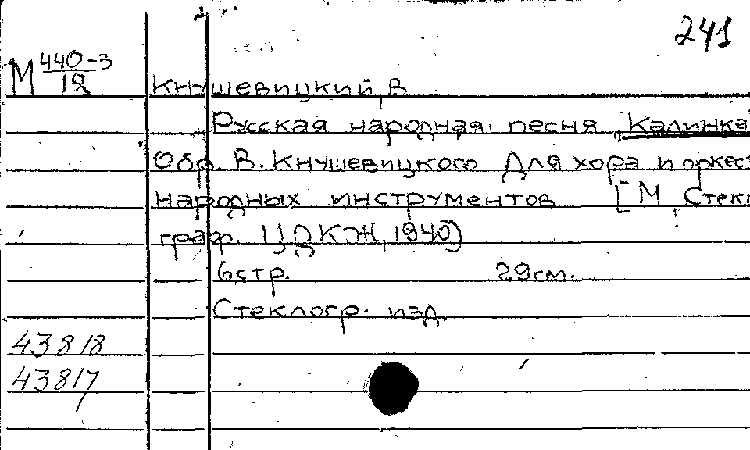 241
М 440-3
12
Кнушевицкий, В.
Русская народная песня Калинка
Обр. В. Кнушевицкого Для хора и оркес
народных инструментов [М, Стекл
граф. ЦДКЖ, 1940]
6 стр. 29 см.
Стеклогр. изд.
43818
43817